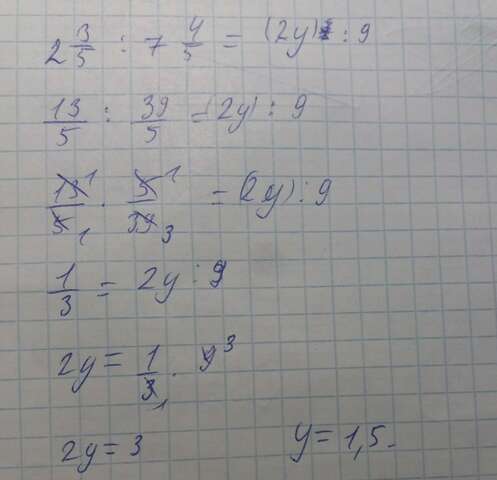 2 3/5 : 7 4/5 = (2y) : 9
13/5 : 39/5 = (2y) : 9
13 1/5 1 · 5 1/39 3 = (2y) : 9
1/3 = 2y : 9
2y = 1/3 1 · 9 3
2y = 3 y = 1,5.